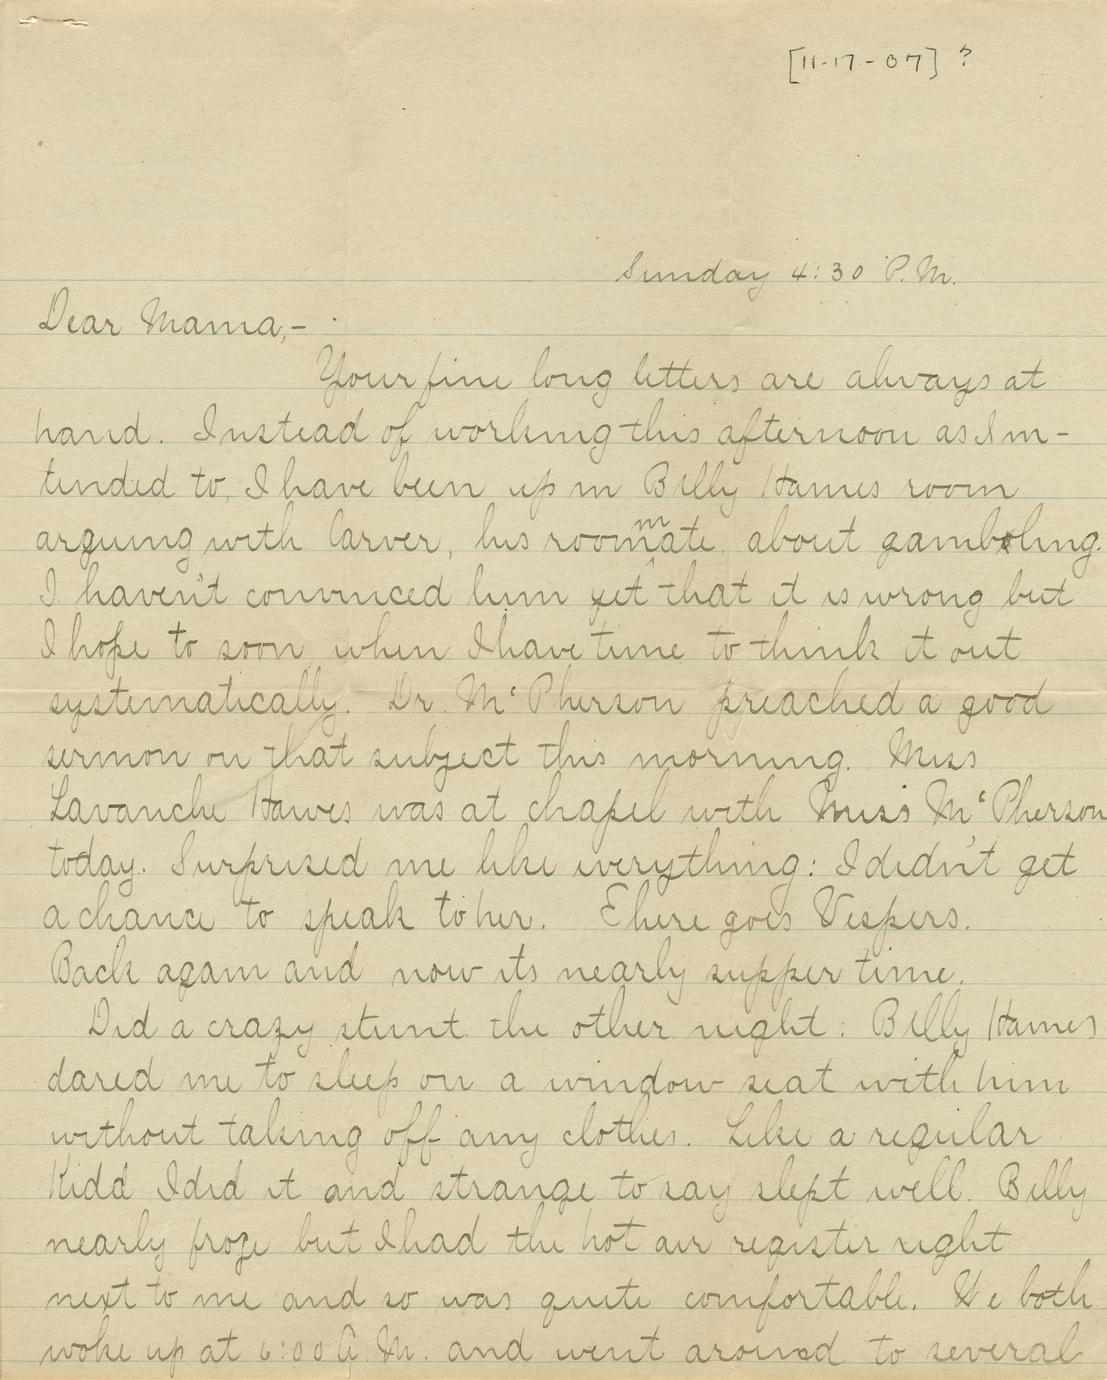 [11-17-07] ?
Sunday 4:30 P.M.
Dear Mama,-
Your fine long letters are always at
hand. Instead of working this afternoon as I in-
tended to, I have been up in Billy Hames room
arguing with Carver, his roommate, about gambling.
I haven't convinced him yet that it is wrong but
I hope to soon when I have time to think it out
systematically. Dr. McPherson preached a good
sermon on that subject this morning. Miss
Lavanche Hawes was at chapel with Miss McPherson
today. Surprised me like everything: I didn't get
a chance to speak to her. There goes Vespers.
Back again and now its nearly supper time.
Did a crazy stunt the other night: Billy Hames
dared me to sleep on a window seat with him
without taking off any clothes. Like a regular
Kidd I did it and strange to say slept well. Billy
nearly froze but I had the hot air register right
next to me and so was quite comfortable. We both
woke up at 6:00 A.M. and went around to several